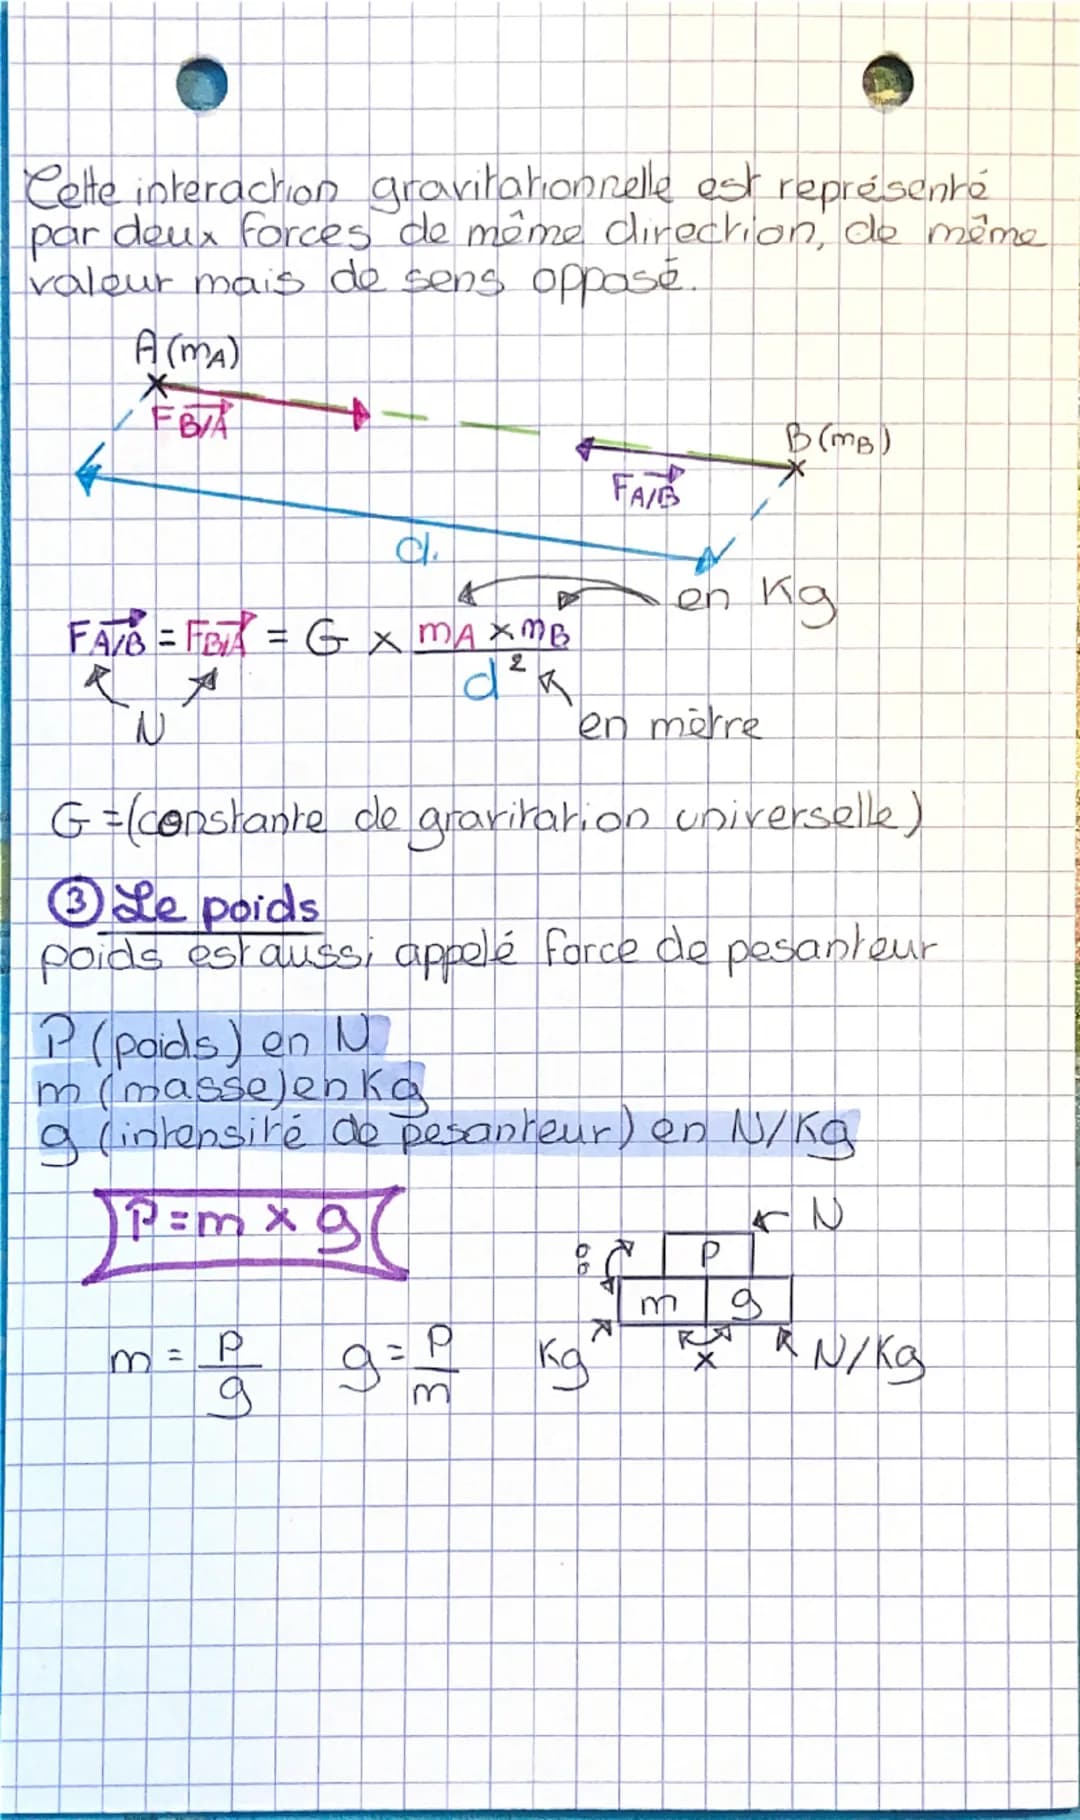 Cette interaction gravitationnelle est représenté
par deux forces de même direction, de même
valeur mais de sens opposé.
A (mA)
F B/A
B (mB)
F A/B
d.
en Kg
FA/B = FB/A = G × mA × mB
d²
N
en mètre
G = (constante de gravitation universelle)
③ Le poids
poids est aussi appelé force de pesanteur
P (poids) en N
m (masse) en Kg
g (intensité de pesanteur) en N/Kg
P = m × g
N
P
m g
m = P
g
g = P
m
Kg
×
N/Kg